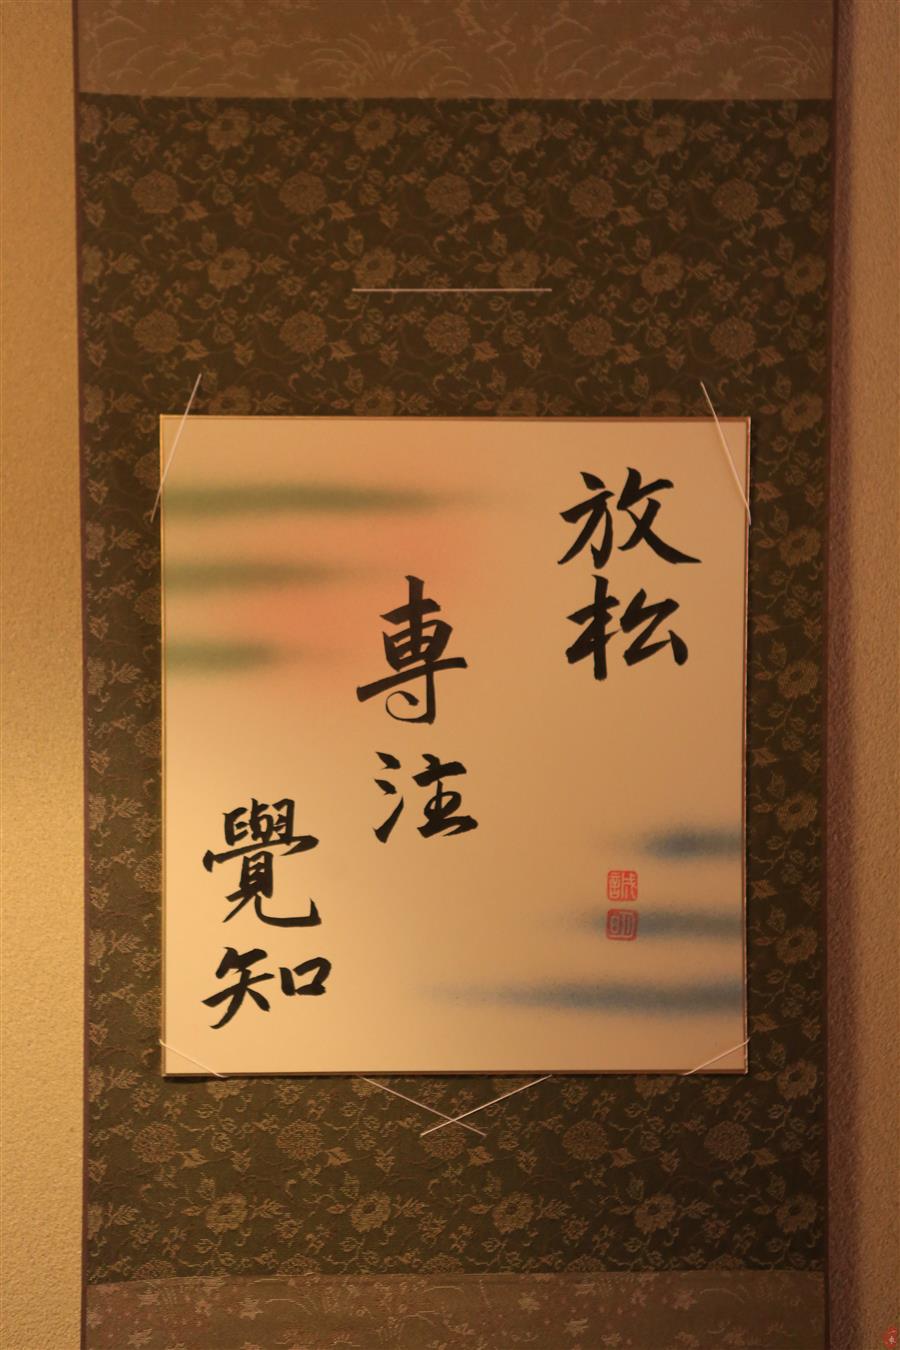 放松
専注
覺知